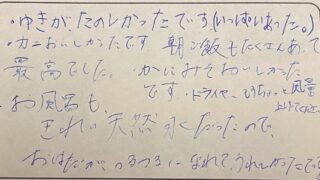 ・ゆきがたのしかったです。(いっぱいあった。)
・カニおいしかったです 朝ご飯もたくさんあって
最高でした。かにみそおいしかった
です ・ドライヤー、もうちょっと風量
上げてください
・お風呂も、
きれい天然水だったので、
おはだが、つるつるになれて、うれしかったで